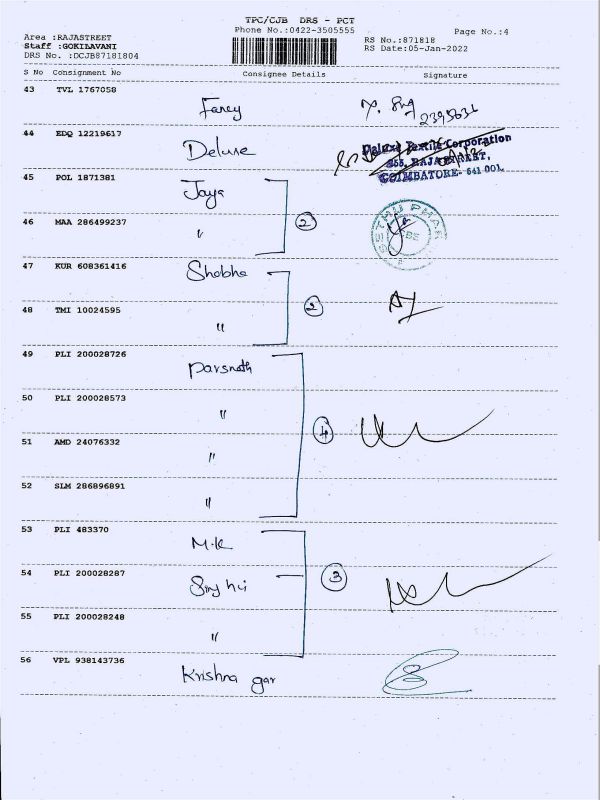 TPC/CJB DRS - PCT
Phone No.:0422-3505555
Page No.:4
Area :RAJASTREET
Staff :GOKILAVANI
DRS No. :DCJB87181804
RS No.:871818
RS Date:05-Jan-2022
S No Consignment No Consignee Details Signature
43 TVL 1767058
Fancy
2395631
44 EDQ 12219617
Deluxe
Deluxe Textile Corporation
RAJA STREET,
COIMBATORE- 641 001.
45 POL 1871381
Jaya
46 MAA 286499237
"
2
SETHU PHAR
47 KUR 608361416
Shobha
48 TMI 10024595
"
2
49 PLI 200028726
Parsnath
50 PLI 200028573
"
4
51 AMD 24076332
"
52 SLM 286896891
"
53 PLI 483370
M.K
54 PLI 200028287
3
55 PLI 200028248
"
56 VPL 938143736
Krishna gar